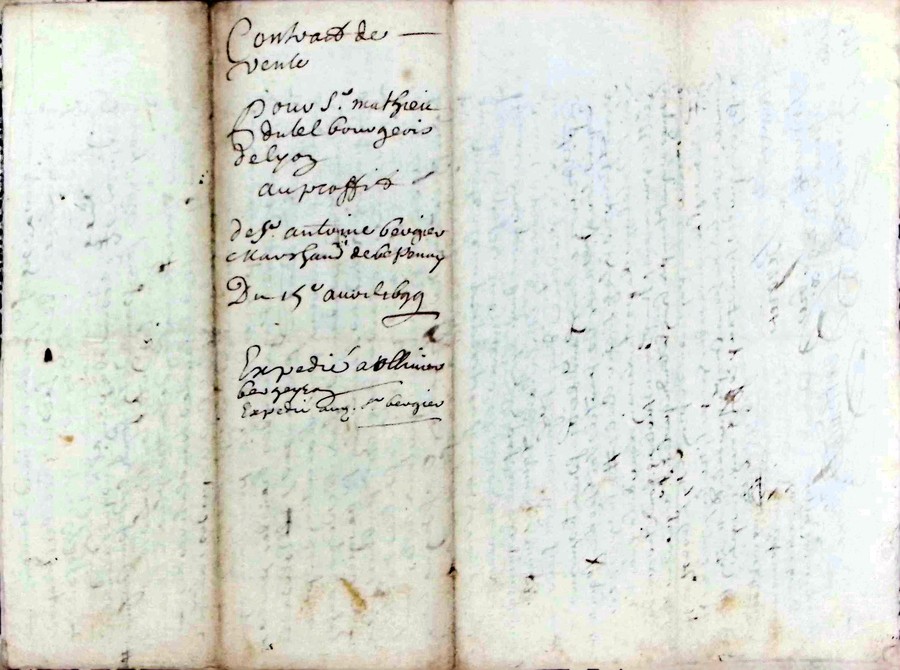 Contract de
vente
Pour Sr. mathieu
dutel bourgeois
de lyon
au proffit
de Sr. antoine bergier
Marchand de
Du 15e auril 1699
Expedié a ollivier
Expedié aud. Sr bergier